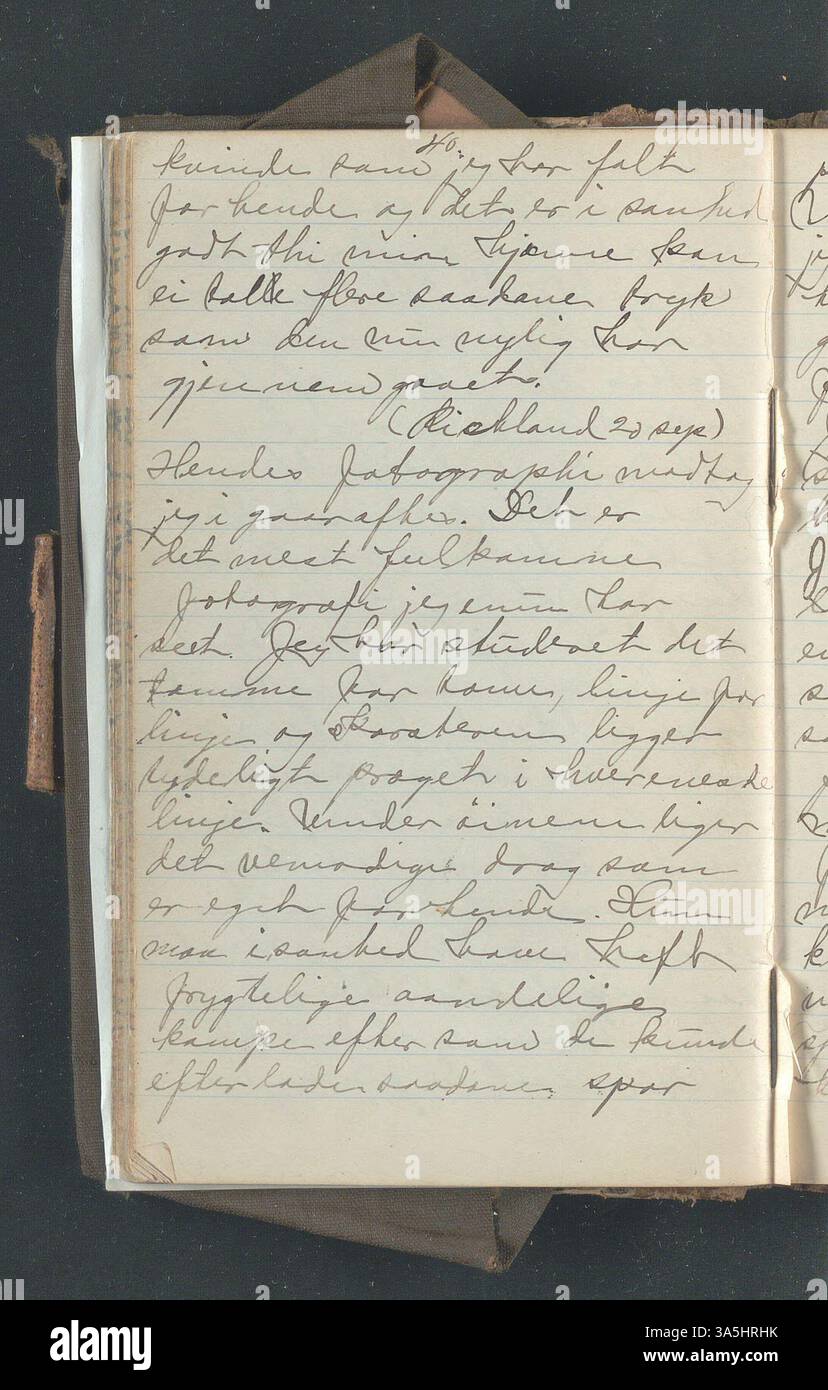 40.
kvinde som jeg har følt
for hende og det er i sanhed
godt thi min hjerne kan
ei taale flere saadane tryk
som den nu nylig har
gjennemgaaet.
(Richland 20 sep)
Hendes fotographi modtog
jeg i gaar aftes. Det er
det mest fulkomne
fotografi jeg ennu har
seet. Jeg har studeret det
tomme for tome, linje for
linje og karakteren ligger
tyderligt præget i hvereneste
linje. Under öinene liger
det vemodige drag som
er eget for hende. Hun
maa i sanhed have haft
frygtelige aandelige
kampe efter som de kunde
efterlade saadane spor
alamy
Image ID: 3A5HRHK
www.alamy.com